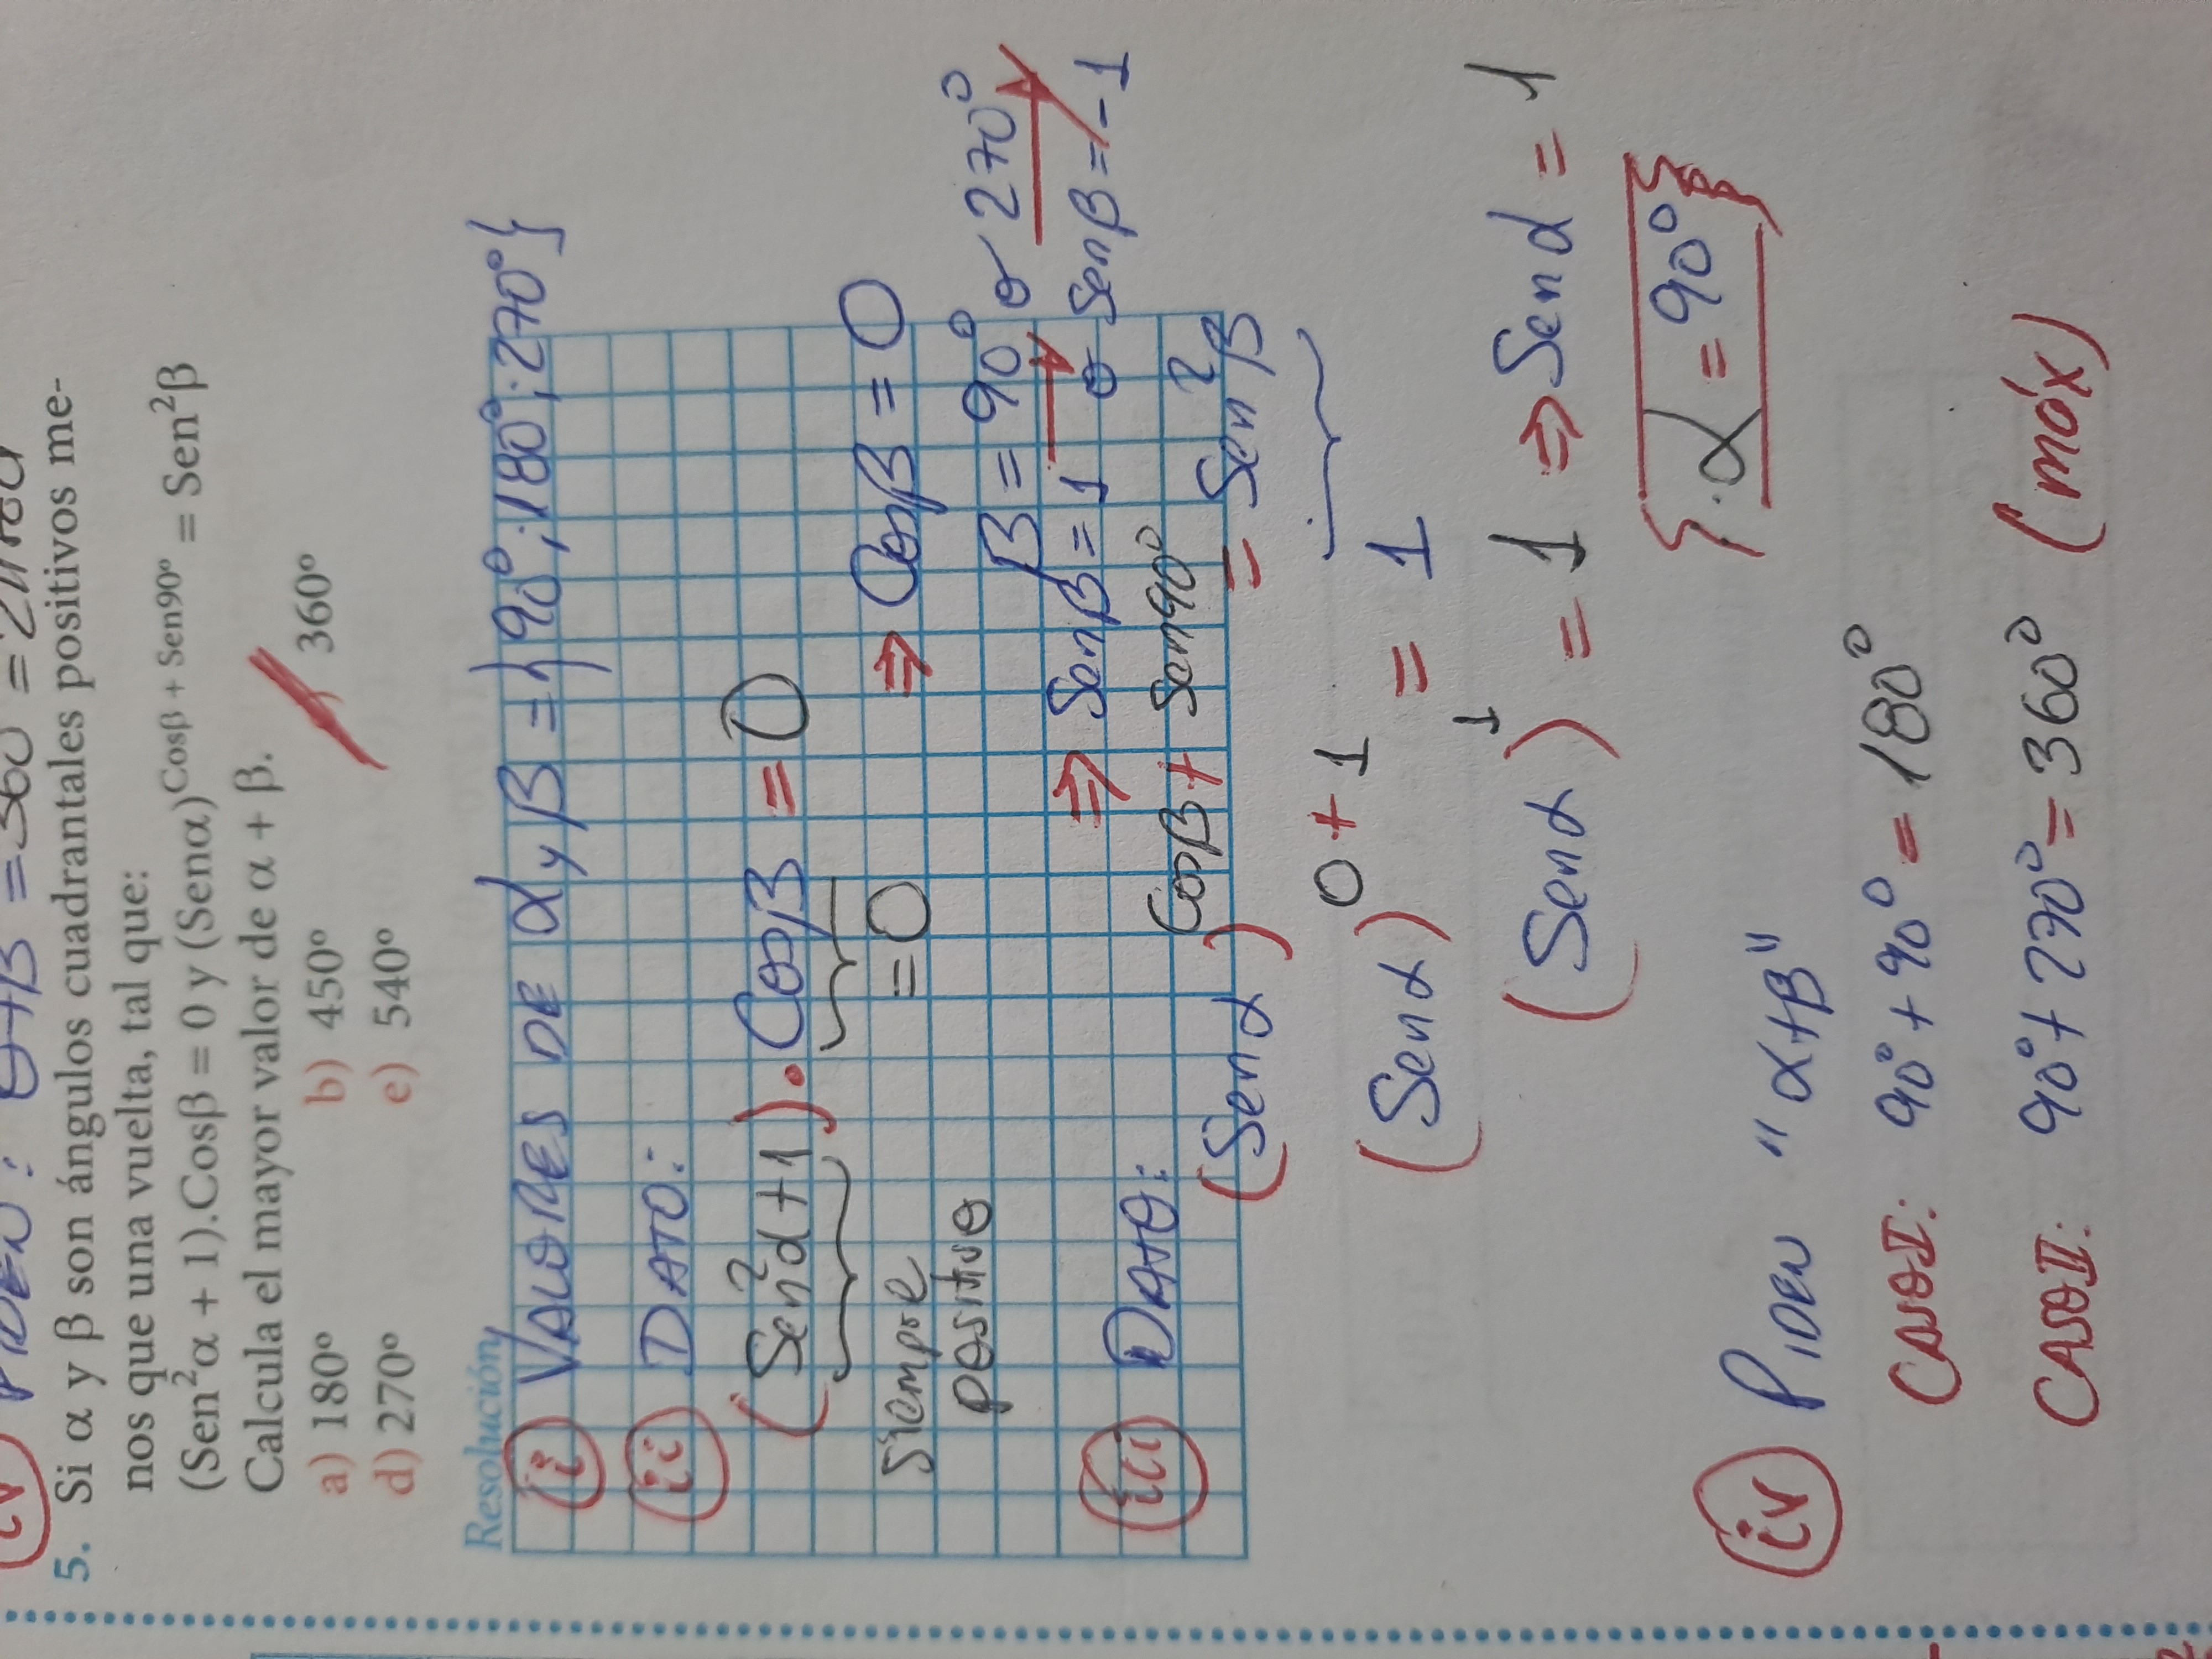 iv PIDEN: θ+β = 360 = 2π rad
5. Si α y β son ángulos cuadrantales positivos me-
nos que una vuelta, tal que:
(Sen²α + 1).Cosβ = 0 y (Senα)^Cosβ + Sen90° = Sen²β
Calcula el mayor valor de α + β.
a) 180° b) 450° 360°
d) 270° e) 540°
Resolución
i VALORES DE α y β = {90°; 180°; 270°}
ii DATO:
(Sen²α+1) . Cosβ = 0
siempre = 0 ⇒ Cosβ = 0
positivo
β = 90° o 270°
⇒ Senβ = 1 o Senβ = -1
iii DATO:
(Senα)^Cosβ + Sen90° = Sen²β
(Senα)^0+1 = 1
(Senα)^1 = 1 ⇒ Senα = 1
α = 90°
iv PIDEN "α+β"
CASO I: 90° + 90° = 180°
CASO II: 90° + 270° = 360° (máx)